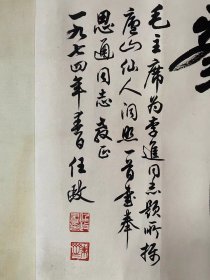 毛主席为李進同志题所摄
庐山仙人洞照一首书奉
恩通同志 教正
一九七四年春日任政